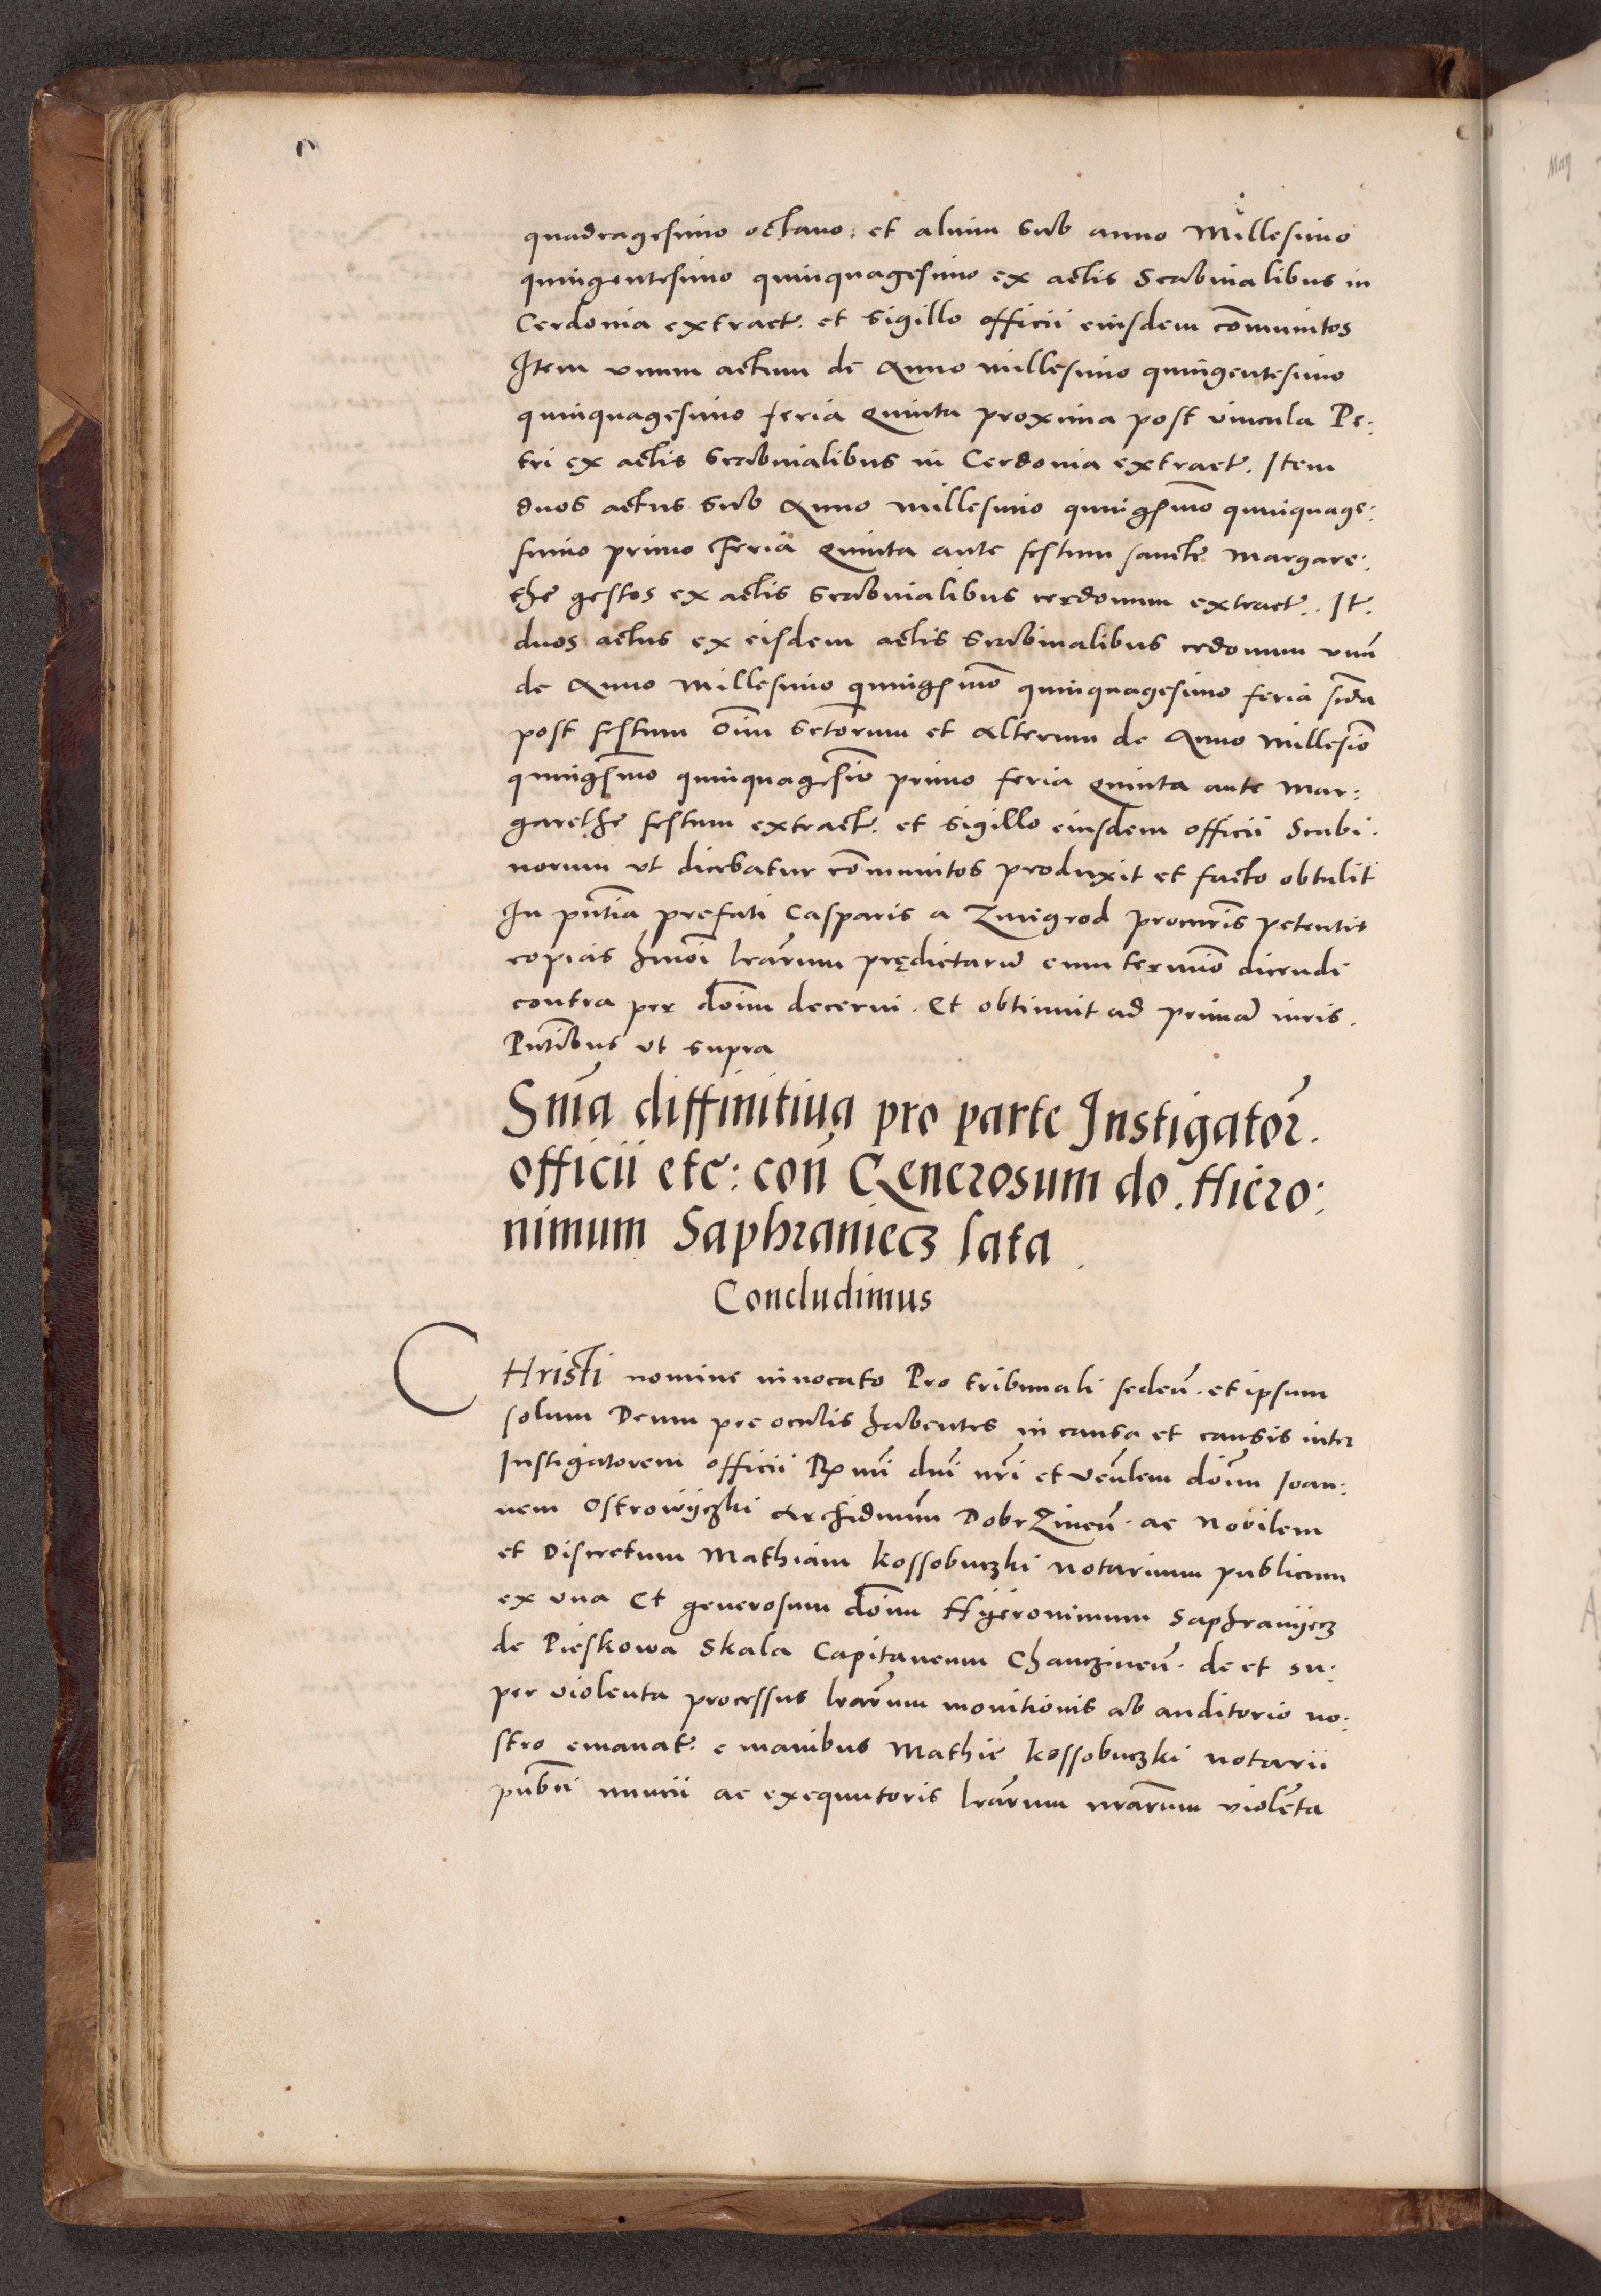 quadragesimo octauo: et alium sub anno Millesimo
quingentesimo quinquagesimo ex actis Scabinalibus in
Cerdonia extract. et sigillo officii eiusdem co̅munitos
Item vnum actum de Anno millesimo quingentesimo
quinquagesimo feria quinta proxima post vincula Pe:
tri ex actis Scabinalibus in Cerdonia extract. Item
duos actus sub Anno millesimo quinge̅smo quinquage:
simo primo feria quinta ante festum sancte Margare:
the gestos ex actis scabinalibus cerdonum extract. It.
duos actus ex eisdem actis scabinalibus cedonum vnu̅
de Anno Millesimo quinge̅smo quinquagesimo feria scda̅
post festum om̅iu sctorum et Alterum de Anno Millesi̅o
quinge̅smo quinquagesi̅o primo feria quinta ante Mar:
garethe festum extract. et sigillo eiusdem officii Scabi:
norum vt dicebatur co̅munitos produxit et facto obtulit
In pn̅tia prefati Casparis a Zmigrod procur̅is petentis
copias hm̅oi lr̅arum prędictaru̅ cum termi̅o dicendi
contra per do̅im decerni. Et obtinuit ad prima̅ iuris.
Pn̅tibus vt supra
Sn̅ia diffinitiua pro parte Instigator̅.
officii etc: con̅ Generosum do. Hiero:
nimum Saphraniecz lata.
Concludimus
CHristi nomine inuocato Pro tribunali seden̅. et ipsum
solum Deum pre oculis habentes in causa et causis inter
Instigatorem officii Rx̅mi dn̅i nr̅i et ven̅lem do̅im Ioan:
nem Ostrowÿczki Archidn̅um DobrZinen̅. ac Nobilem
et Discretum Mathiam Kossobuczki notarium publicum
ex vna Et generosum do̅im Hÿeronimum Saphranÿecz
de Pieskowa Skala Capitaneum Chanczinen̅. de et su:
per violenta processus lr̅arum monitionis ab auditorio no:
stro emanat. e manibus Mathie Kossobuczki notarii
pub̅ci nuncii ac exequutoris lr̅arum nr̅arum violenta